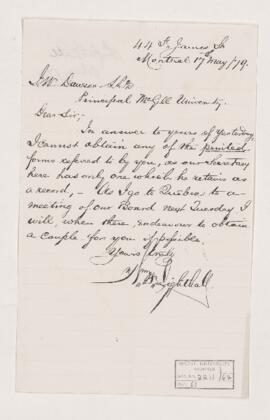 44 St. James St
Montreal 17th May /79.
J. W. Dawson
Principal McGill University.
Dear Sir,
In answer to yours of yesterday,
I cannot obtain any of the printed
forms referred to by you, as our Secretary
here has only one which he retains as
a record, - As I go to Quebec to a
meeting of our Board next Tuesday I
will when there, endeavour to obtain
a couple for you if possible.
Yours truly
Wm F. Lighthall
McGILL UNIVERSITY
ARCHIVES
ACC. NO. 2211/62